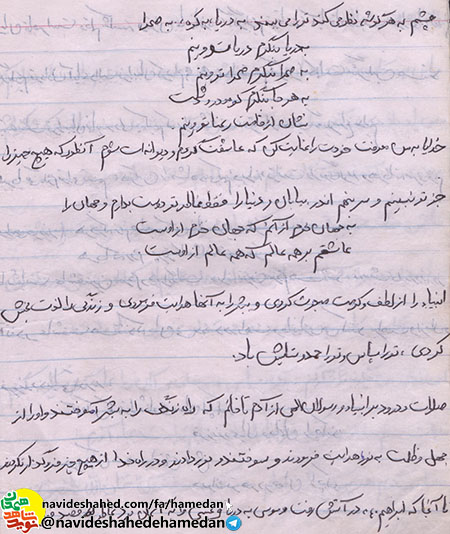 چشم به هر گوشه نظر می کند ترا می بیند به دریا به کوه، به صحرا
به دریا بنگرم دریا تو وینم
به صحرا بنگرم صحرا تو وینم
به هر جا بنگرم کوه و در و دشت
نشان از قامت رعنا تو وینم
خدایا به من معرفت خودت را عنایت کن که عاشقت گردم و دیوانه ات شوم آنطور که هیچ چیز را
جز تو نبینم و سر نهم اندر بیابان و دنیا را فقط بخاطر تو دوست بدارم و جهان را
به جهان خرم از آنم که جهان خرم از اوست
عاشقم بر همه عالم که همه عالم از اوست
انبیاء را از لطف و کرمت مبعوث کردی و بشر را به آنها هدایت فرمودی و زندگی را لذت بخش
کردی، تو را سپاس و ترا حمد و ستایش باد.
صلوات و درود بر انبیاء و رسولان الهی از آدم تا خاتم که راه زندگی را به بشر آموختند و او را از
جهل و ظلمت به نور هدایت فرمودند و سوختند و نور دادند و در راه خدا از هیچ چیز فروگذار نکردند
تا آنجا که ابراهیم، در آتش رفت و موسی به دریا و عیسی
navideshahed.com/fa/hamedan
@navideshahedehamedan